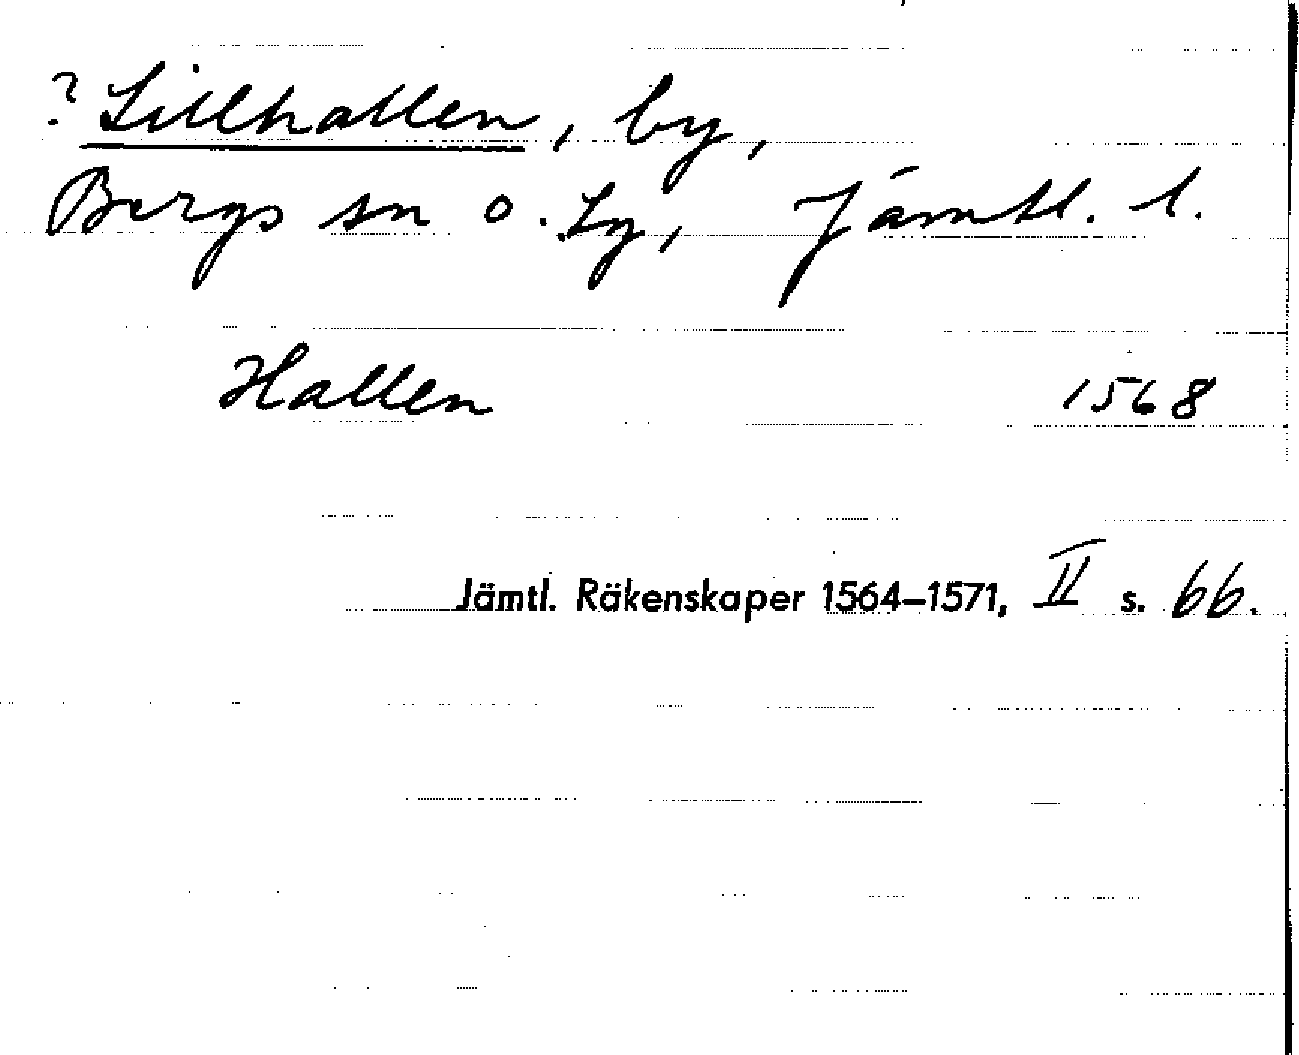 ? Lillhallen, by,
Bergs sn o. Tg, Jämtl. l.
Hallen 1568
Jämtl. Räkenskaper 1564–1571, II s. 66.